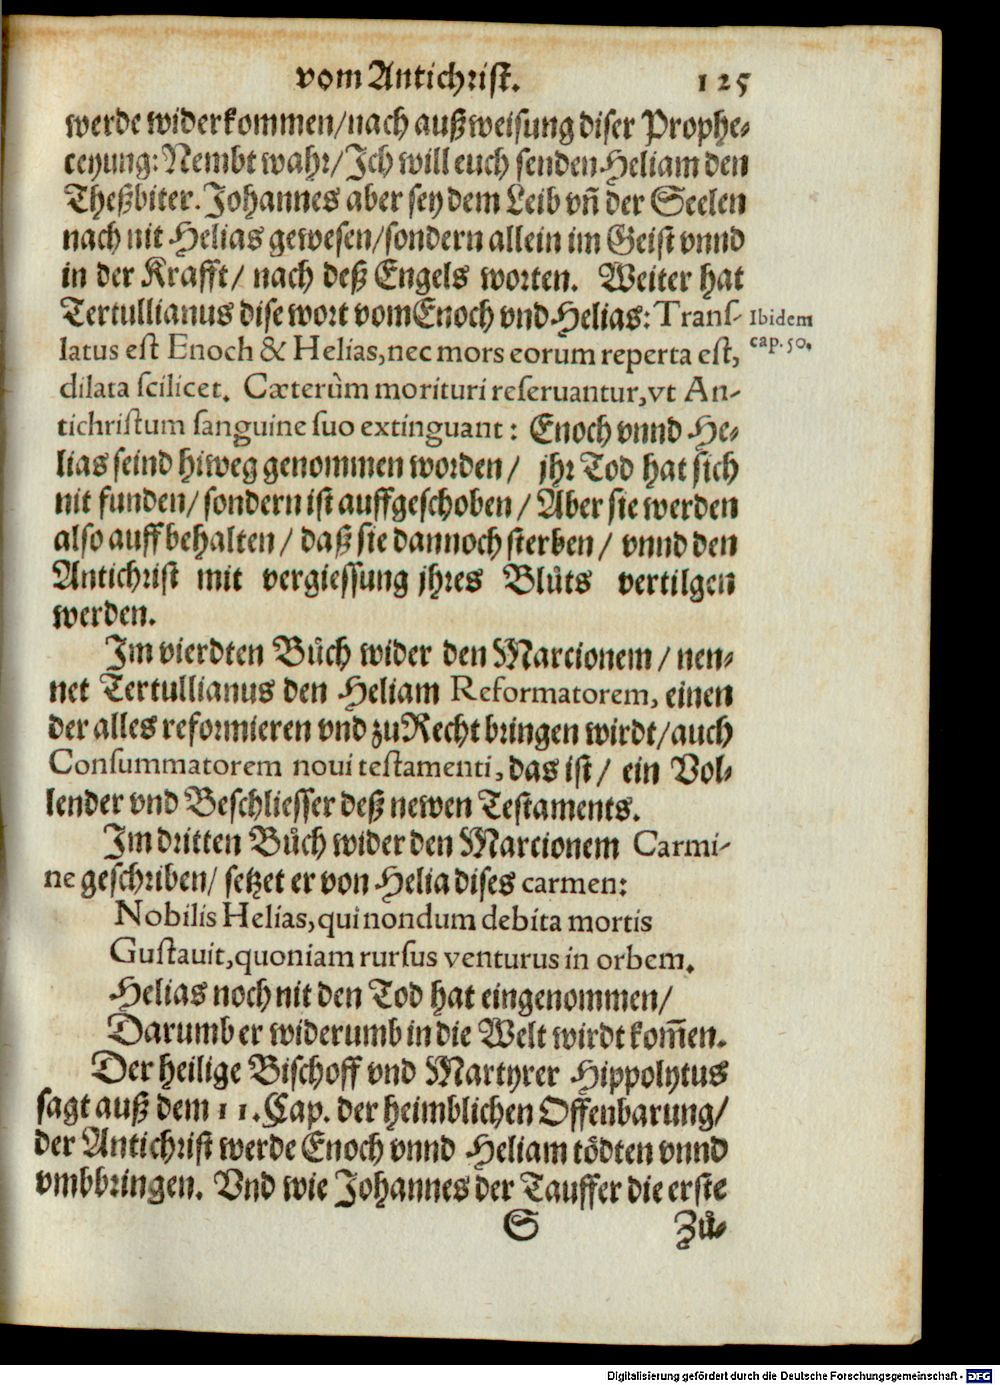 vom Antichrist. 125
werde widerkommen/nach außweisung diser Prophe-
ceyung: Nembt wahr/Ich will euch senden Heliam den
Theßbiter. Johannes aber sey dem Leib vñ der Seelen
nach nit Helias gewesen/sondern allein im Geist vnnd
in der Krafft/ nach deß Engels worten. Weiter hat
Tertullianus dise wort vom Enoch vnd Helias: Trans-
latus est Enoch & Helias, nec mors eorum reperta est,
dilata scilicet. Cæterùm morituri reseruantur, vt An-
tichristum sanguine suo extinguant: Enoch vnnd He-
lias seind hiweg genommen worden/ jhr Tod hat sich
nit funden/ sondern ist auffgeschoben/ Aber sie werden
also auffbehalten/ daß sie dannoch sterben/ vnnd den
Antichrist mit vergiessung jhres Blůts vertilgen
werden.
Ibidem
cap. 50.
Im vierdten Bůch wider den Marcionem/ nen-
net Tertullianus den Heliam Reformatorem, einen
der alles reformieren vnd zu Recht bringen wirdt/auch
Consummatorem noui testamenti, das ist/ ein Vol-
lender vnd Beschliesser deß newen Testaments.
Im dritten Bůch wider den Marcionem Carmi-
ne geschriben/ setzet er von Helia dises carmen:
Nobilis Helias, qui nondum debita mortis
Gustauit, quoniam rursus venturus in orbem.
Helias noch nit den Tod hat eingenommen/
Darumb er widerumb in die Welt wirdt kom̃en.
Der heilige Bischoff vnd Martyrer Hippolytus
sagt auß dem 11. Cap. der heimblichen Offenbarung/
der Antichrist werde Enoch vnnd Heliam tödten vnnd
vmbbringen. Vnd wie Johannes der Tauffer die erste
S Zů-
Digitalisierung gefördert durch die Deutsche Forschungsgemeinschaft - DFG